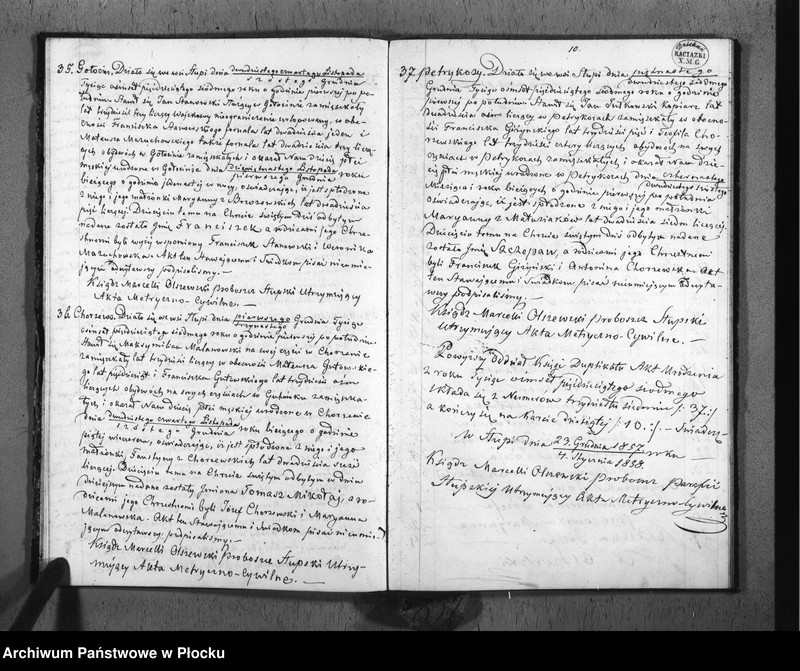 35. Gołocin. Działo się we wsi Słupi dnia dwudziestego czwartego Listopada
szóstego Grudnia
Tysiąc ośmset pięćdziesiątego siódmego roku o godzinie pierwszej po po-
łudniu. Stawił się Jan Stanowski
w Gołocinie zamięszkały
lat trzydzieści trzy liczący Wojskowy nieograniczenie urlopowany, w obe-
cności Franciszka fornala lat dwadzieścia jeden i
Mateusza Maruchowskiego także fornala lat dwadzieścia trzy liczą-
cych obydwóch w Gołocinie zamięszkałych i okazał Nam dziecię płci
męzkiej urodzone w Gołocinie dnia dziewiętnastego Listopada roku
pierwszego Grudnia
bieżącego o godzinie jedenastej w nocy, oświadczając, iż jest spłodzone
z niego i jego małżonki Maryanny z lat dwadzieścia
pięć liczącej. Dziecięciu temu na Chrzcie świętym dziś odbytym
nadane zostało imię Franciszek a rodzicami jego Chrze-
stnemi byli wyżej wspomniony Franciszek Stanowski i Weronika
Maruchowska. Akt ten Stawającemu i Świadkom pisać nieumie-
jącym przeczytawszy podpisaliśmy. —
Ksiądz Marcelli Olszewski Proboszcz Słupski Utrzymujący
Akta Metryczno-Cywilne. —
36. Chorzewo. Działo się we wsi Słupi dnia pierwszego Grudnia Tysiąc
trzynastego
ośmset pięćdziesiątego siódmego roku o godzinie pierwszej po południu.
Stawił się Maksymilian Malanowski na swej części w Chorzewie
zamięszkały lat trzydzieści liczący w obecności Mateusza Gutowskie-
go lat pięćdziesiąt i Franciszka Gutowskiego lat trzydzieści ośm
liczących obydwóch na swych częściach w Gutowku zamięszka-
łych, i okazał Nam dziecię płci męzkiej urodzone w Chorzewie
dnia dwudziestego czwartego Listopada
szóstego Grudnia roku bieżącego o godzinie
piątej wieczorem, oświadczając, iż jest spłodzone z niego i jego
małżonki, Faustyny z Chorzewskich lat dwadzieścia sześć
liczącej. Dziecięciu temu na Chrzcie świętym odbytym w dniu
dzisiejszym nadane zostały Imiona Tomasz Mikołaj, a ro-
dzicami jego Chrzestnemi byli Józef Chorzewski i Maryanna
Malanowska. Akt ten Stawającemu i Świadkom pisać nieumie-
jącym przeczytawszy podpisaliśmy. —
Ksiądz Marcelli Olszewski Proboszcz Słupski Utrzy-
mujący Akta Metryczno-Cywilne. —
10.
RACIĄŻKI
X.M.G
37. Petrykozy. Działo się we wsi Słupi dnia piętnastego
dwudziestego siódmego
Grudnia Tysiąc ośmset pięćdziesiątego siódmego roku o godzinie
pierwszej po południu. Stawił się Jan lat
dwadzieścia ośm liczący w Petrykozach zamięszkały w obecno-
ści Franciszka Giżyńskiego lat trzydzieści pięć i Teofila Cho-
rzewskiego lat trzydzieści cztery liczących obydwóch na swych
częściach w Petrykozach zamięszkałych, i okazał Nam dzie-
cię płci męzkiej urodzone w Petrykozach dnia czternastego
dwudziestego szóstego
Miesiąca i roku bieżących o godzinie pierwszej po południu
oświadczając, iż jest spłodzone z niego i jego małżonki
Maryanny z Matusiaków lat dwadzieścia siedm liczącej.
Dziecięciu temu na Chrzcie świętym dziś odbytym nadane
zostało imię Szczepan, a rodzicami jego Chrzestnemi
byli Franciszek Giżyński i Antonina Chorzewska. Akt
ten Stawającemu i Świadkom pisać nieumiejącym przeczyta-
wszy podpisaliśmy. —
Ksiądz Marcelli Olszewski Proboszcz Słupski
Utrzymujący Akta Metryczno-Cywilne. —
Powyższy oddział Księgi Duplikatu Akt Urodzenia
z roku Tysiąc ośmset pięćdziesiątego siódmego
składa się z Numerów trzydziestu siedmiu /:37:/
a kończy się na karcie dziesiątej /:10:/ — Świadczę
w Słupi dnia 23. Grudnia 1857 roku —
4. Stycznia 1858.
Ksiądz Marcelli Olszewski Proboszcz Parafii
Słupskiej Utrzymujący Akta Metryczno-Cywilne
Archiwum Państwowe w Płocku